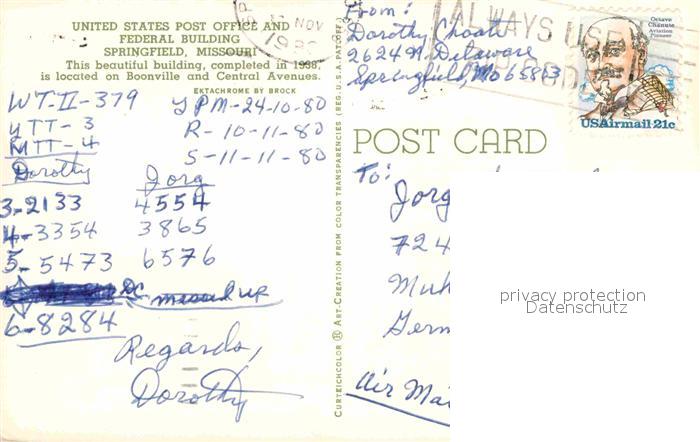 UNITED STATES POST OFFICE AND
FEDERAL BUILDING
SPRINGFIELD, MISSOURI
This beautiful building, completed in 1938,
is located on Boonville and Central Avenues.
EKTACHROME BY BROCK
WT-II-379
YTT-3
MTT-4
YPM-24-10-80
R-10-11-80
S-11-11-80
Dorothy Jorg
3-2133 4554
4-3354 3865
5-5473 6576
DC messed up
6-8284
Regards,
Dorothy
CURTEICHCOLOR ® ART-CREATION FROM COLOR TRANSPARENCIES (REG. U.S.A. PAT. OFF.)
NOV
ALWAYS USE
From:
Dorothy Choate
2624 N. Delaware
Springfield, Mo 65803
Octave
Chanute
Aviation
Pioneer
USAirmail 21c
POST CARD
To:
Jorg
724
Muh
Germ
Air Mai
privacy protection
Datenschutz